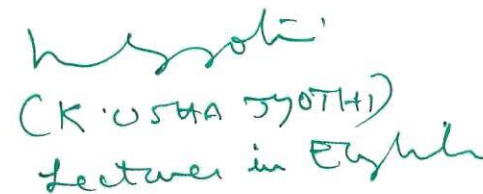 (K. USHA JYOTHI)
Lecturer in English